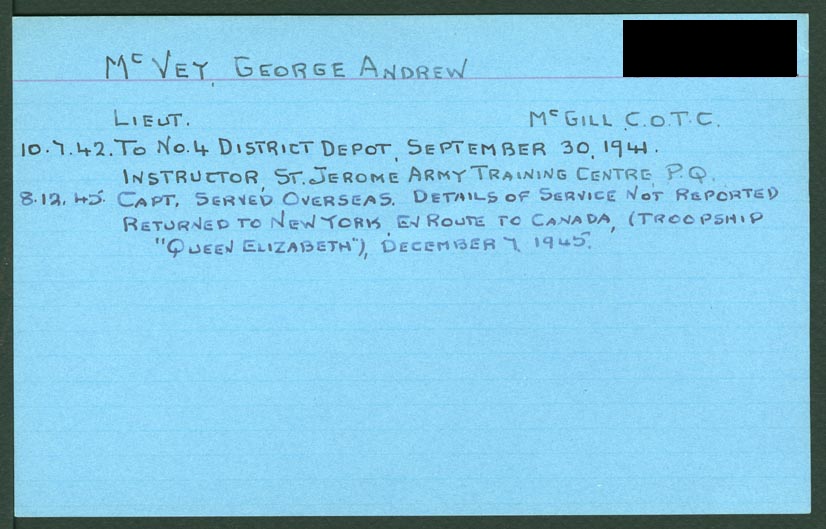 McVEY, GEORGE ANDREW
LIEUT. McGILL C.O.T.C.
10.7.42. TO NO.4 DISTRICT DEPOT, SEPTEMBER 30, 1941.
INSTRUCTOR, ST. JEROME ARMY TRAINING CENTRE, P.Q.
8.12.45. CAPT. SERVED OVERSEAS. DETAILS OF SERVICE NOT REPORTED
RETURNED TO NEW YORK, EN ROUTE TO CANADA, (TROOPSHIP
"QUEEN ELIZABETH"), DECEMBER 7, 1945.